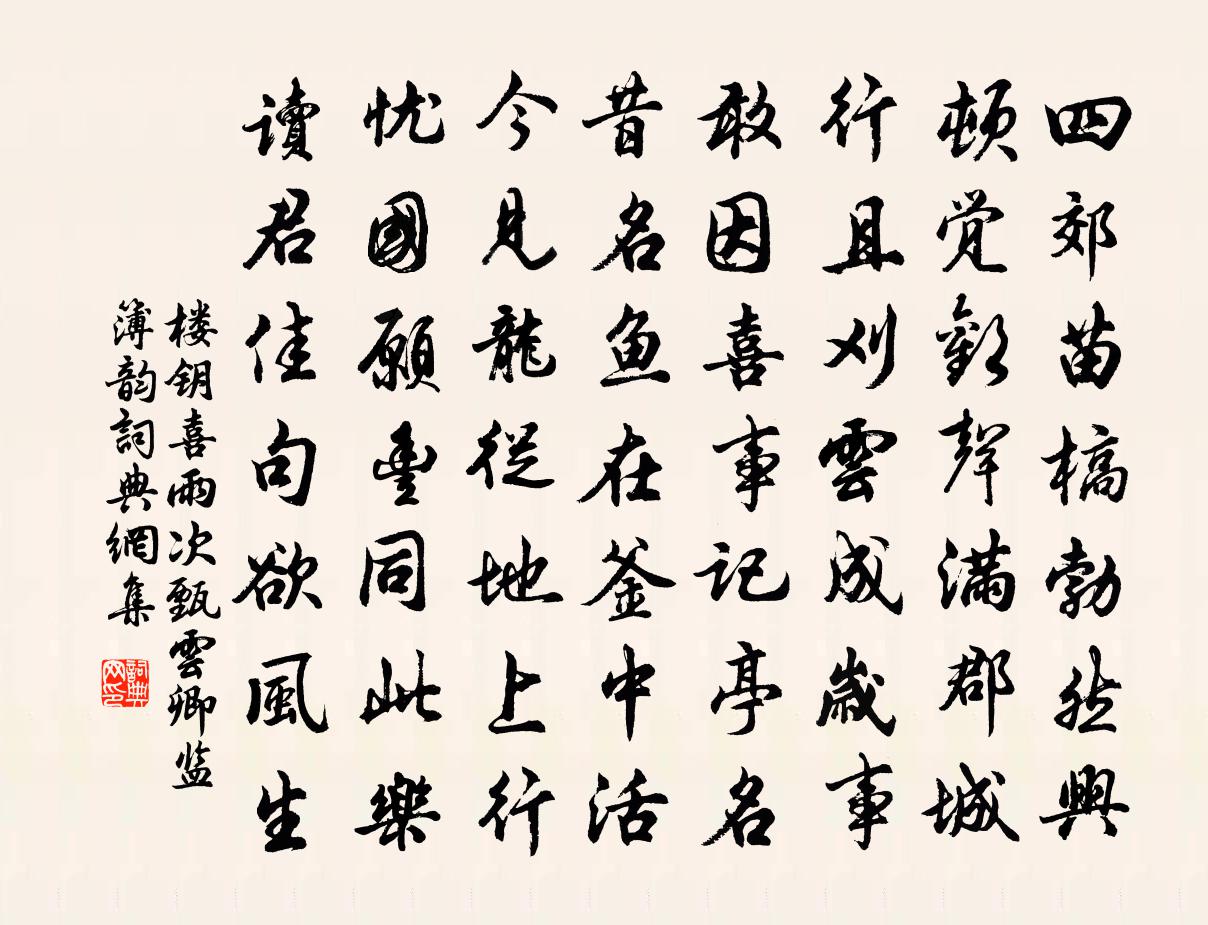 四郊苗槁勃然興
頓覚歡聲滿郡城
行且刈雲成歲事
敢因喜事記亭名
昔名魚在釜中活
今見龍從地上行
忧國願豊同此樂
讀君佳句欲風生
楼钥喜雨次甄雲卿监
簿韵詞典網集
詞典网印